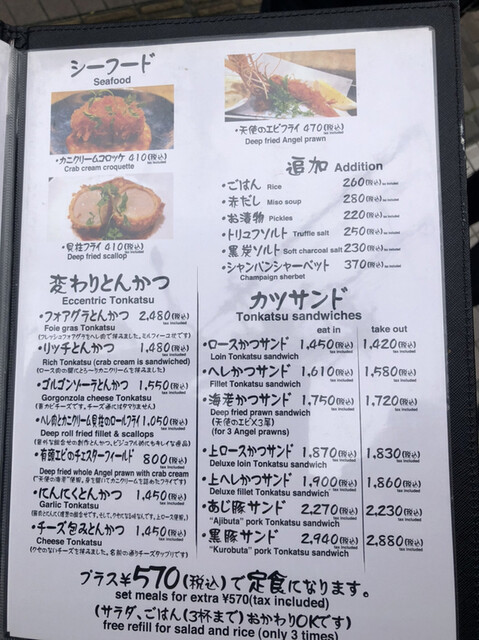 シーフード
Seafood
・カニクリームコロッケ 410(税込)
Crab cream croquette
・貝柱フライ 410(税込)
Deep fried scallop
・天使のエビフライ 470(税込)
Deep fried Angel prawn
追加 Addition
・ごはん Rice 260(税込) tax included
・赤だし Miso soup 280(税込) tax included
・お漬物 Pickles 220(税込) tax included
・トリュフソルト Truffle salt 250(税込) tax included
・黒炭ソルト Soft charcoal salt 230(税込) tax included
・シャンパンシャーベット 370(税込) tax included
Champaign sherbet
変わりとんかつ
Eccentric Tonkatsu
・フォアグラとんかつ 2,480(税込)
Foie gras Tonkatsu tax included
・リッチとんかつ 1,480(税込)
Rich Tonkatsu (crab cream is sandwiched) tax included
・ゴルゴンゾーラとんかつ 1,550(税込)
Gorgonzola cheese Tonkatsu tax included
・ヘレ肉とカニクリーム貝柱のロールフライ 1,050(税込)
Deep roll fried fillet & scallops tax included
・有頭エビのチェスターフィールド 800(税込)
Deep fried whole Angel prawn with crab cream tax included
・にんにくとんかつ 1,450(税込)
Garlic Tonkatsu tax included
・チーズ包みとんかつ 1,450(税込)
Cheese Tonkatsu tax included
カツサンド
Tonkatsu sandwiches
eat in take out
・ロースかつサンド 1,450(税込) 1,420(税込)
Loin Tonkatsu sandwich tax included tax included
・ヘレかつサンド 1,610(税込) 1,580(税込)
Fillet Tonkatsu sandwich tax included tax included
・海老かつサンド 1,750(税込) 1,720(税込)
Deep fried prawn sandwich tax included tax included
(天使のエビ×3尾)
(for 3 Angel prawns)
・上ロースかつサンド 1,870(税込) 1,830(税込)
Deluxe loin Tonkatsu sandwich tax included tax included
・上ヘレかつサンド 1,900(税込) 1,860(税込)
Deluxe fillet Tonkatsu sandwich tax included tax included
・あじ豚サンド 2,270(税込) 2,230(税込)
"Ajibuta" pork Tonkatsu sandwich tax included tax included
・黒豚サンド 2,940(税込) 2,880(税込)
"Kurobuta" pork Tonkatsu sandwich tax included tax included
プラス¥570(税込)で定食になります。
set meals for extra ¥570(tax included)
(サラダ、ごはん(3杯まで)おかわりOKです)
free refill for salad and rice (only 3 times)